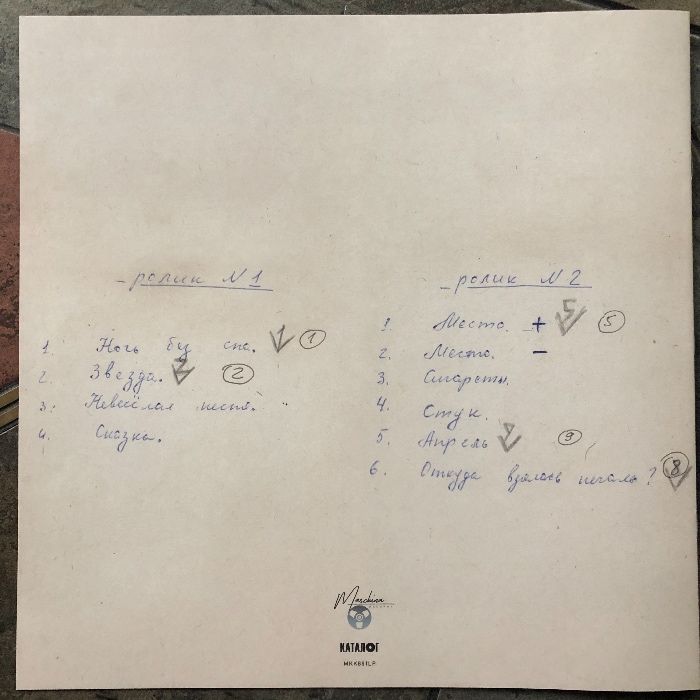 ролик N 1
1. Ночь бу спа. 1 1
2. Звезда. 2 2
3. Невесёлая песня.
4. Сказка.
ролик N 2
1. Место. + 5 5
2. Место. -
3. Сигареты.
4. Стук.
5. Апрель 9 9
6. Откуда взялась печаль? 8
Maschina
RECORDS
КАТАЛОГ